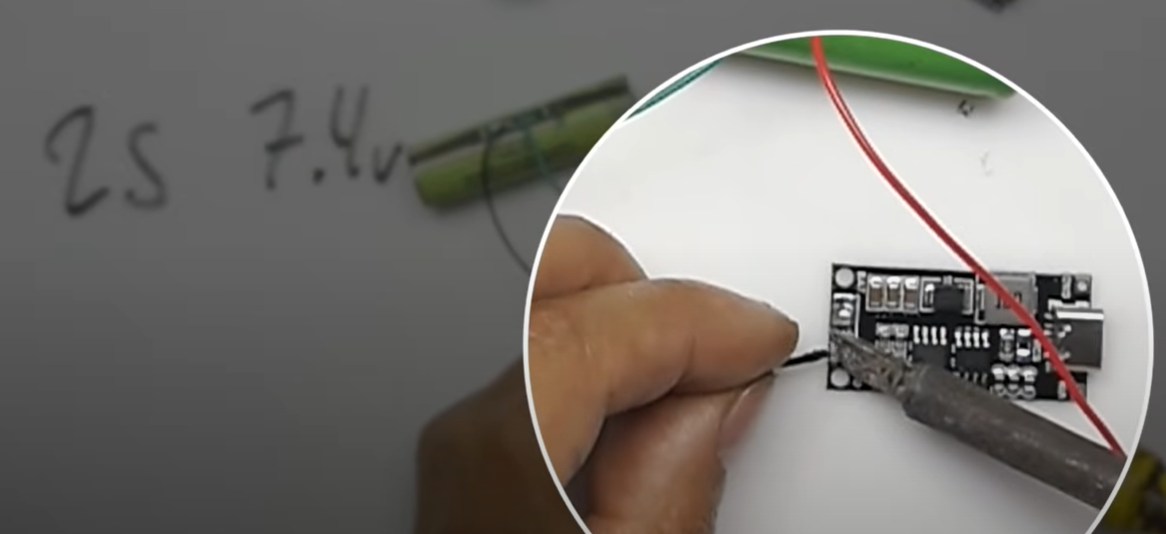 2S 7.4v